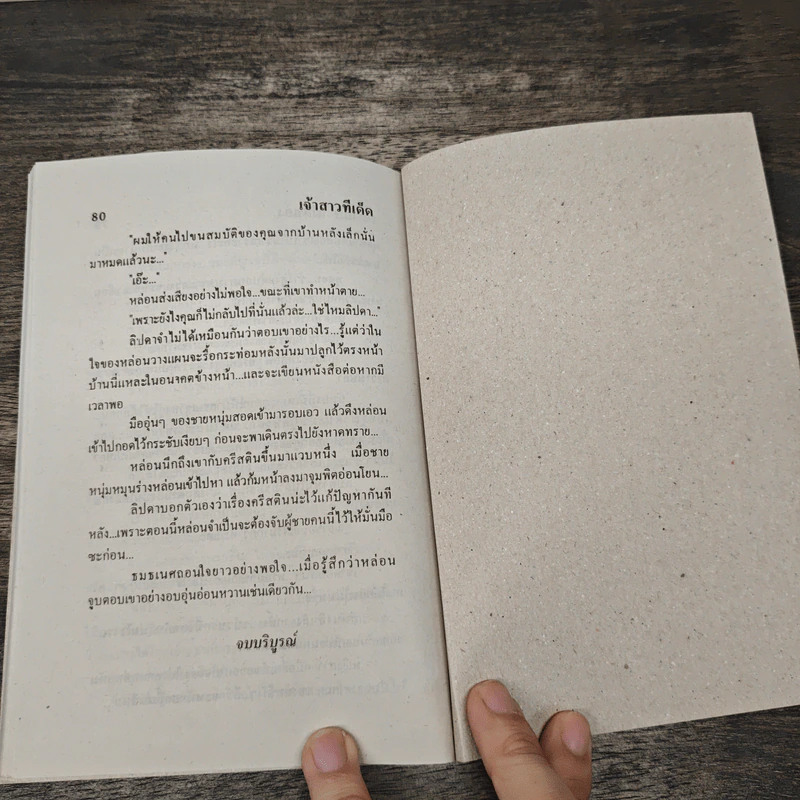 80
เจ้าสาวทีเด็ด
"ผมให้คนไปขนสมบัติของคุณจากบ้านหลังเล็กนั่น
มาหมดแล้วนะ..."
"เอ๊ะ..."
หล่อนส่งเสียงอย่างไม่พอใจ...ขณะที่เขาทำหน้าตาย...
"เพราะยังไงคุณก็ไม่กลับไปที่นั่นแล้วล่ะ...ใช่ไหมลิปดา..."
ลิปดาจำไม่ได้เหมือนกันว่าตอบเขาอย่างไร...รู้แต่ว่าใน
ใจของหล่อนวางแผนจะรื้อกระท่อมหลังนั้นมาปลูกไว้ตรงหน้า
บ้านนี่แหละในอนาคตข้างหน้า...และจะเขียนหนังสือต่อหากมี
เวลาพอ
มืออุ่นๆ ของชายหนุ่มสอดเข้ามารอบเอว แล้วดึงหล่อน
เข้าไปกอดไว้กระชับเงียบๆ ก่อนจะพาเดินตรงไปยังหาดทราย...
หล่อนนึกถึงเขากับคริสตินขึ้นมาแวบหนึ่ง เมื่อชาย
หนุ่มหมุนร่างหล่อนเข้าไปหา แล้วก้มหน้าลงมาจุมพิตอ่อนโยน...
ลิปดาบอกตัวเองว่าเรื่องคริสตินน่ะไว้แก้ปัญหากันที
หลัง...เพราะตอนนี้หล่อนจำเป็นจะต้องจับผู้ชายคนนี้ไว้ให้มั่นมือ
ซะก่อน...
ธมธเนศถอนใจยาวอย่างพอใจ...เมื่อรู้สึกว่าหล่อน
จูบตอบเขาอย่างอบอุ่นอ่อนหวานเช่นเดียวกัน...
จบบริบูรณ์